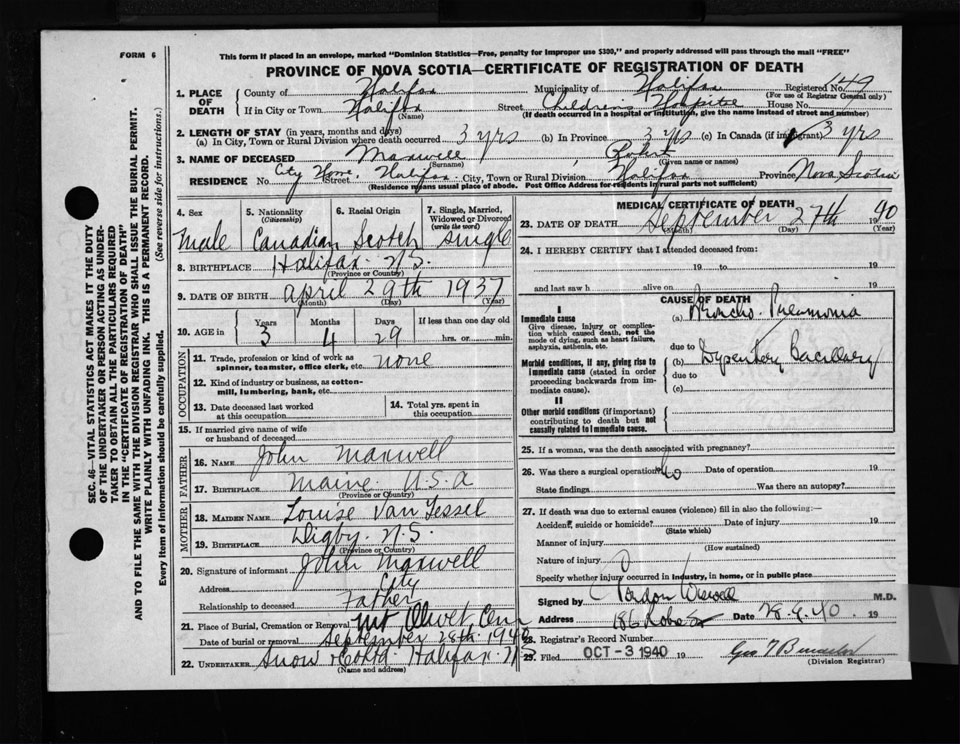 FORM 6
This form if placed in an envelope, marked "Dominion Statistics—Free, penalty for improper use $300," and properly addressed will pass through the mail "FREE"
PROVINCE OF NOVA SCOTIA—CERTIFICATE OF REGISTRATION OF DEATH
1. PLACE OF DEATH
County of Halifax Municipality of Halifax Registered No. 149
(For use of Registrar General only)
If in City or Town Halifax Street Childrens Hospital House No.
(Name) (If death occurred in a hospital or institution, give the name instead of street and number)
2. LENGTH OF STAY (in years, months and days)
(a) In City, Town or Rural Division where death occurred 3 yrs (b) In Province 3 yrs (c) In Canada (if immigrant) 3 yrs
3. NAME OF DECEASED Maxwell, Robert
(Surname) (Given name or names)
RESIDENCE No. City Home Street, Halifax City, Town or Rural Division Halifax Province Nova Scotia
(Residence means usual place of abode. Post Office Address for residents in rural parts not sufficient)
4. Sex Male
5. Nationality (Citizenship) Canadian
6. Racial Origin Scotch
7. Single, Married, Widowed or Divorced (write the word) single
8. BIRTHPLACE Halifax N.S.
(Province or Country)
9. DATE OF BIRTH April 29th 1937
(Month) (Day) (Year)
10. AGE in Years 3 Months 4 Days 29 If less than one day old hrs. or min.
OCCUPATION
11. Trade, profession or kind of work as spinner, teamster, office clerk, etc. none
12. Kind of industry or business, as cotton-mill, lumbering, bank, etc.
13. Date deceased last worked at this occupation
14. Total yrs. spent in this occupation
15. If married give name of wife or husband of deceased
FATHER
16. NAME John Maxwell
17. BIRTHPLACE Maine U.S.A
(Province or Country)
MOTHER
18. MAIDEN NAME Louise Van Tessel
19. BIRTHPLACE Digby. N.S.
(Province or Country)
20. Signature of informant John Maxwell
Address City
Relationship to deceased Father
21. Place of Burial, Cremation or Removal Mt Olivet Cem
Date of burial or removal September 28th 1940
22. UNDERTAKER Snow Halifax N.S.
(Name and address)
MEDICAL CERTIFICATE OF DEATH
23. DATE OF DEATH September 27th 1940
(Month) (Day) (Year)
24. I HEREBY CERTIFY that I attended deceased from:
19 to 19
and last saw h alive on 19
CAUSE OF DEATH
I
Immediate cause
Give disease, injury or complication which caused death, not the mode of dying, such as heart failure, asphyxia, asthenia, etc.
(a) Broncho. Pneumonia
due to
Morbid conditions, if any, giving rise to immediate cause (stated in order proceeding backwards from immediate cause).
(b) Dysentery Bacillary
due to
(c)
II
Other morbid conditions (if important) contributing to death but not causally related to immediate cause.
25. If a woman, was the death associated with pregnancy?
26. Was there a surgical operation? No Date of operation 19
State findings Was there an autopsy?
27. If death was due to external causes (violence) fill in also the following:—
Accident, suicide or homicide? Date of injury 19
(State which)
Manner of injury
(How sustained)
Nature of injury
Specify whether injury occurred in industry, in home, or in public place
Signed by Gordon M.D.
Address 186 Date 28.9.40. 19
28. Registrar's Record Number
29. Filed OCT - 3 1940 19
(Division Registrar)
SEC. 46—VITAL STATISTICS ACT MAKES IT THE DUTY OF THE UNDERTAKER OR PERSON ACTING AS UNDERTAKER TO OBTAIN ALL THE PARTICULARS REQUIRED IN THE "CERTIFICATE OF REGISTRATION OF DEATH" AND TO FILE THE SAME WITH THE DIVISION REGISTRAR WHO SHALL ISSUE THE BURIAL PERMIT.
WRITE PLAINLY WITH UNFADING INK. THIS IS A PERMANENT RECORD.
Every item of information should be carefully supplied. (See reverse side for instructions.)